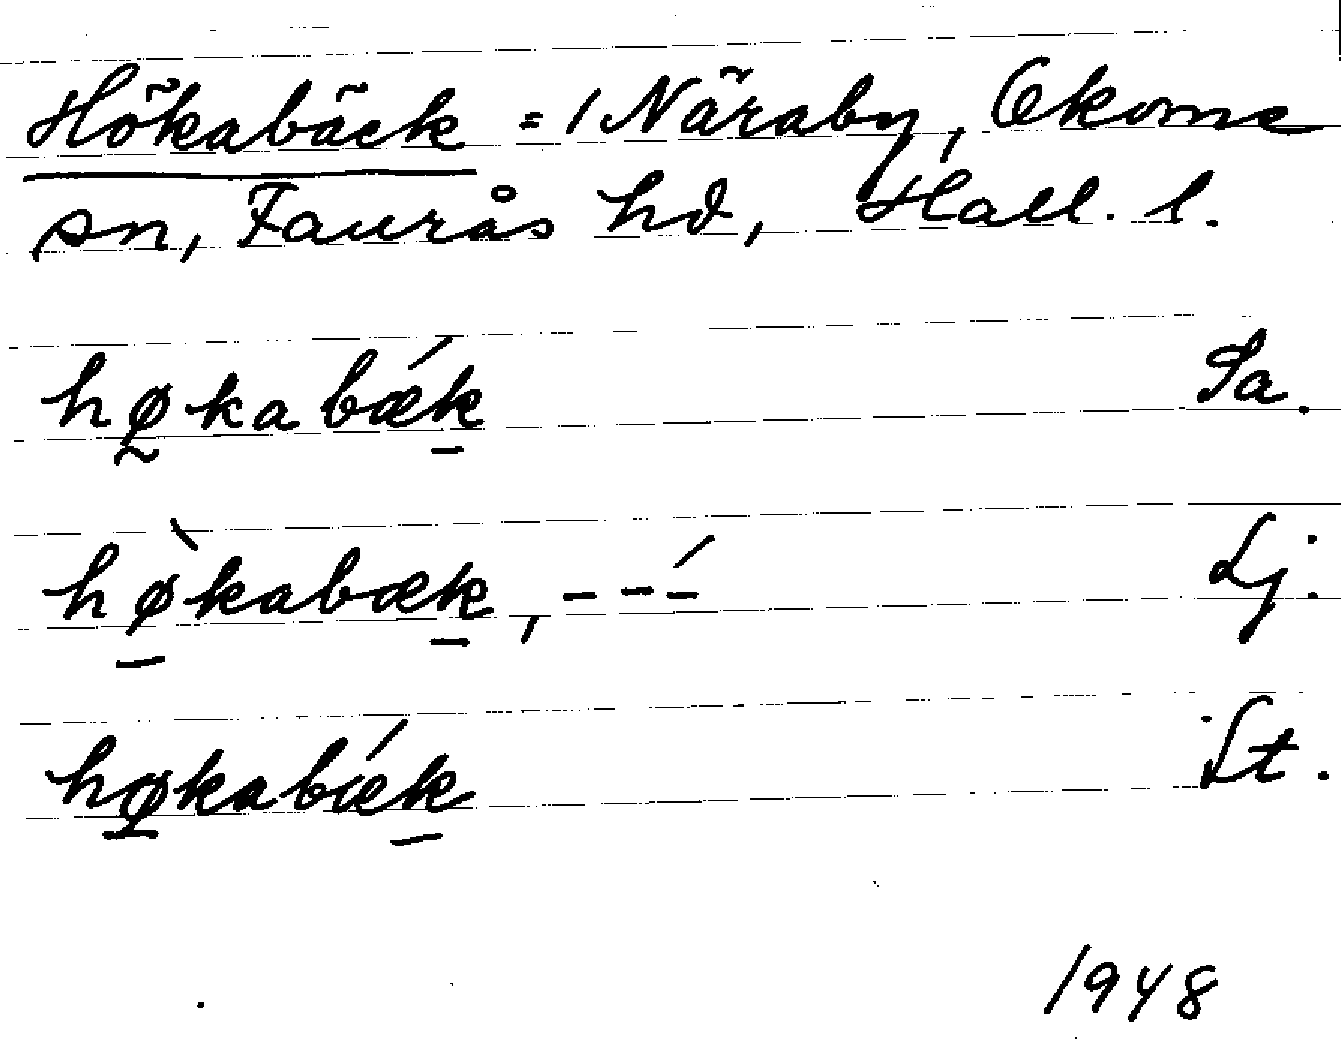 Hökabäck = 1 Näraby, Okome
sn, Faurås hd, Hall. l.
hø̰kabǽk̲ Sa.
hø̲̀kabæk̲, - - -́ Lj.
hø̲kabǽk̲ St.
1948